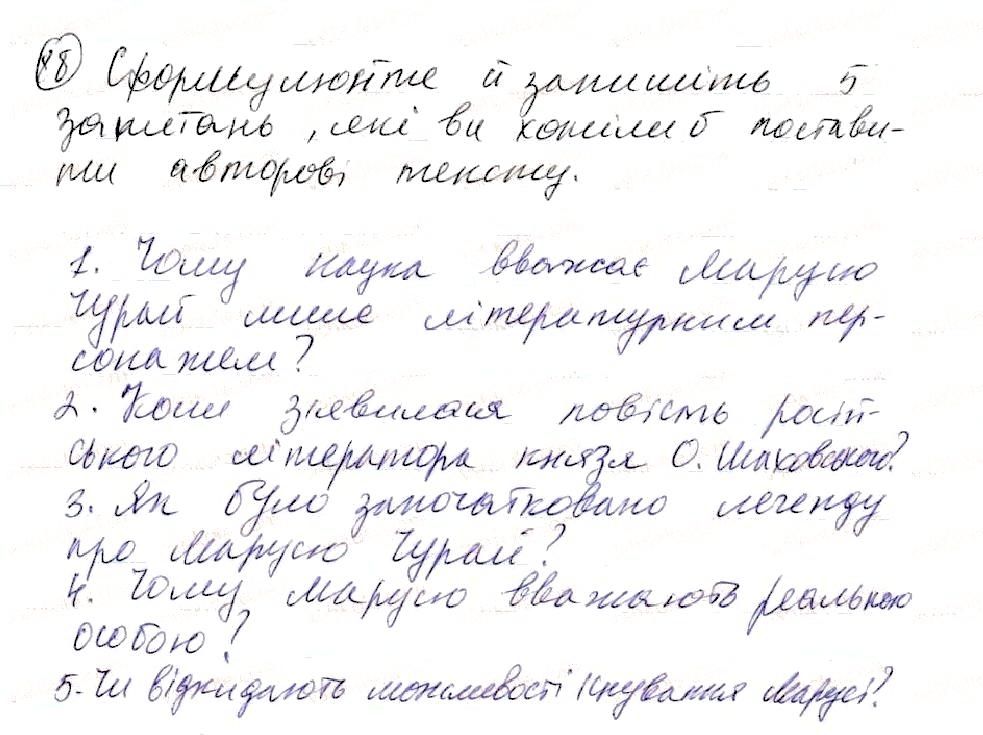 Сформулюйте й запишіть 5
запитань, які ви хотіли б постави-
ти авторові тексту.
1. Чому наука вважає Марусю
Чурай лише літературним пер-
сонажем?
2. Коли з'явилася повість росій-
ського літератора князя О. Шаховського?
3. Як було започатковано легенду
про Марусю Чурай?
4. Чому Марусю вважають реальною
особою?
5. Чи відкидають можливості існування Марусі?